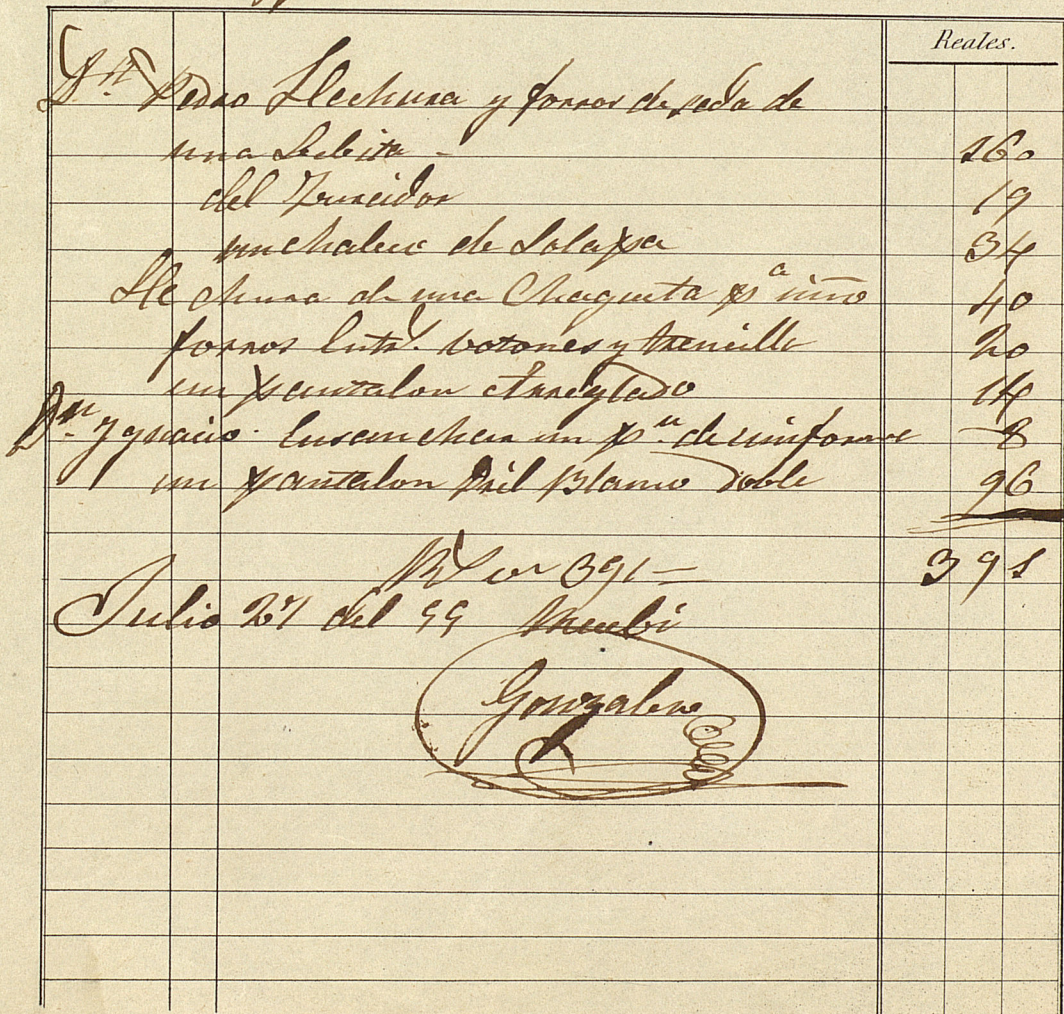 Reales.
Dn Pedro Hechura y forros de seda de
una Lebita - 160
del Zurcidor 19
un chaleco de Solapa 34
Hechura de una Chaqueta pa niño 40
forros Entr. botones y trencilla 20
un pantalon Arreglado 14
Dn Ygnacio. Ensanchar un pn de uniforme 8
un pantalon Dril Blanco doble 96
Rs vn 391 = 391
Julio 27 del 55 Recibi
Gonzalez